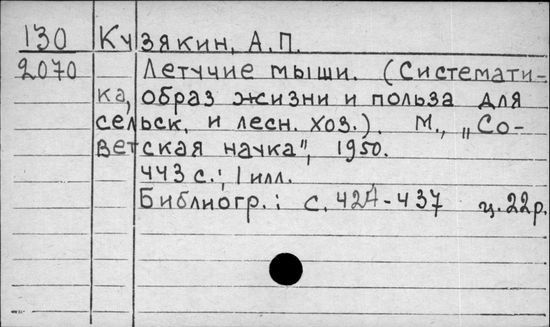 130 Кузякин, А.П.
2070 Летучие мыши. (Системати-
ка, образ жизни и польза для
сельск. и лесн. хоз.). М., „Со-
ветская наука", 1950.
443 с.; 1 илл.
Библиогр.: с. 424-437 ц. 22р.